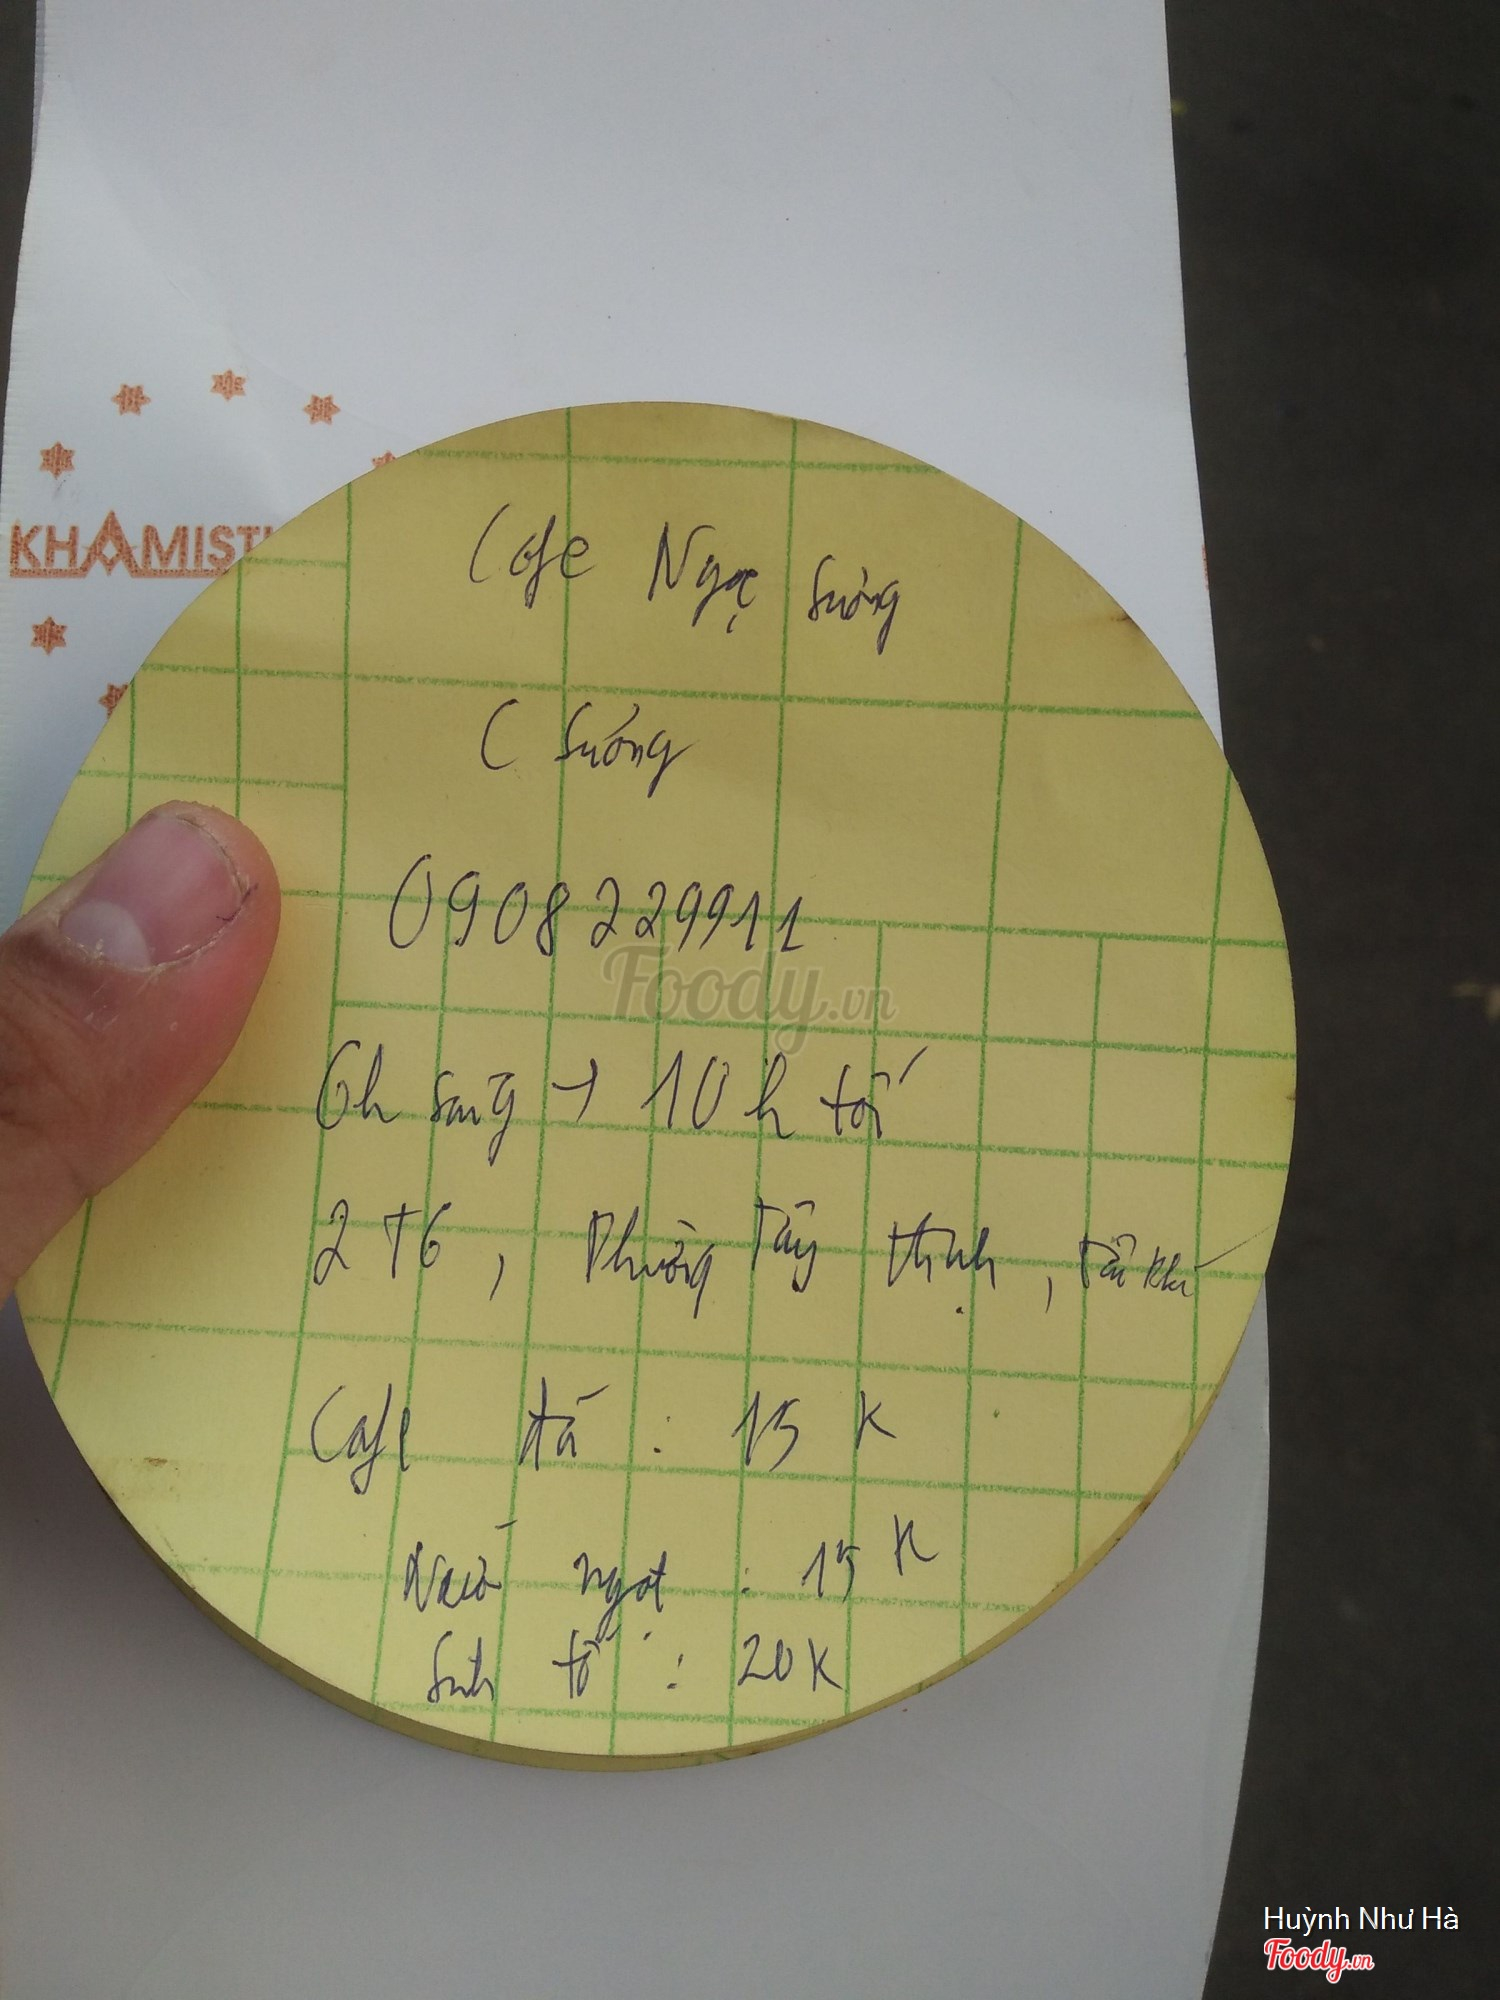 KHAMISTI
Cafe Ngọc Sương
C Sương
0908229911
Foody.vn
6h sáng → 10h tối
2 T6, Phường Tây Thạnh, Tân
Cafe đá : 15 K
Nước ngọt : 15 K
Sinh tố : 20K
Huỳnh Như Hà
Foody.vn